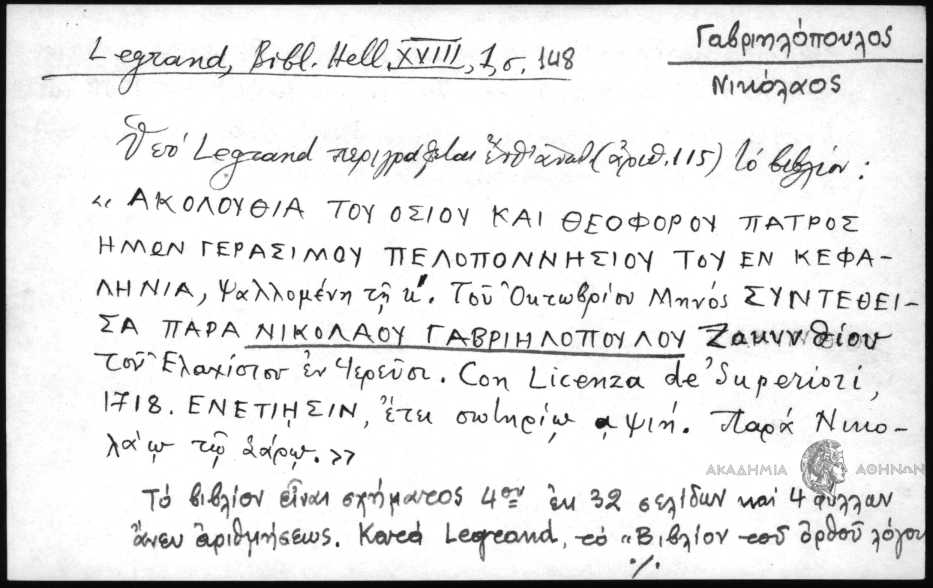 Γαβριηλόπουλος
Νικόλαος
Legrand, Bibl. Hell, XVIII, 1, σ. 148
Ὑπό Legrand περιγράφεται ἐνταῦθα (ἀριθ. 115) τό βιβλίον:
« ΑΚΟΛΟΥΘΙΑ ΤΟΥ ΟΣΙΟΥ ΚΑΙ ΘΕΟΦΟΡΟΥ ΠΑΤΡΟΣ
ΗΜΩΝ ΓΕΡΑΣΙΜΟΥ ΠΕΛΟΠΟΝΝΗΣΙΟΥ ΤΟΥ ΕΝ ΚΕΦΑ-
ΛΗΝΙΑ, ψαλλομένη τῇ κ'. Τοῦ Ὀκτωβρίου Μηνός ΣΥΝΤΕΘΕΙ-
ΣΑ ΠΑΡΑ ΝΙΚΟΛΑΟΥ ΓΑΒΡΙΗΛΟΠΟΥΛΟΥ Ζακυνθίου
τοῦ Ἐλαχίστου ἐν Ἱερεῦσι. Con Licenza de' Superiori,
1718. ΕΝΕΤΙΗΣΙΝ, ἔτει σωτηρίῳ αψιή. Παρά Νικο-
λάῳ τῷ Σάρῳ. »
ΑΚΑΔΗΜΙΑ ΑΘΗΝΩΝ
Τό βιβλίον εἶναι σχήματος 4ον ἐκ 32 σελίδων καί 4 φύλλων
ἄνευ ἀριθμήσεως. Κατά Legrand, τό « Βιβλίον τοῦ ὀρθοῦ λόγου
./.